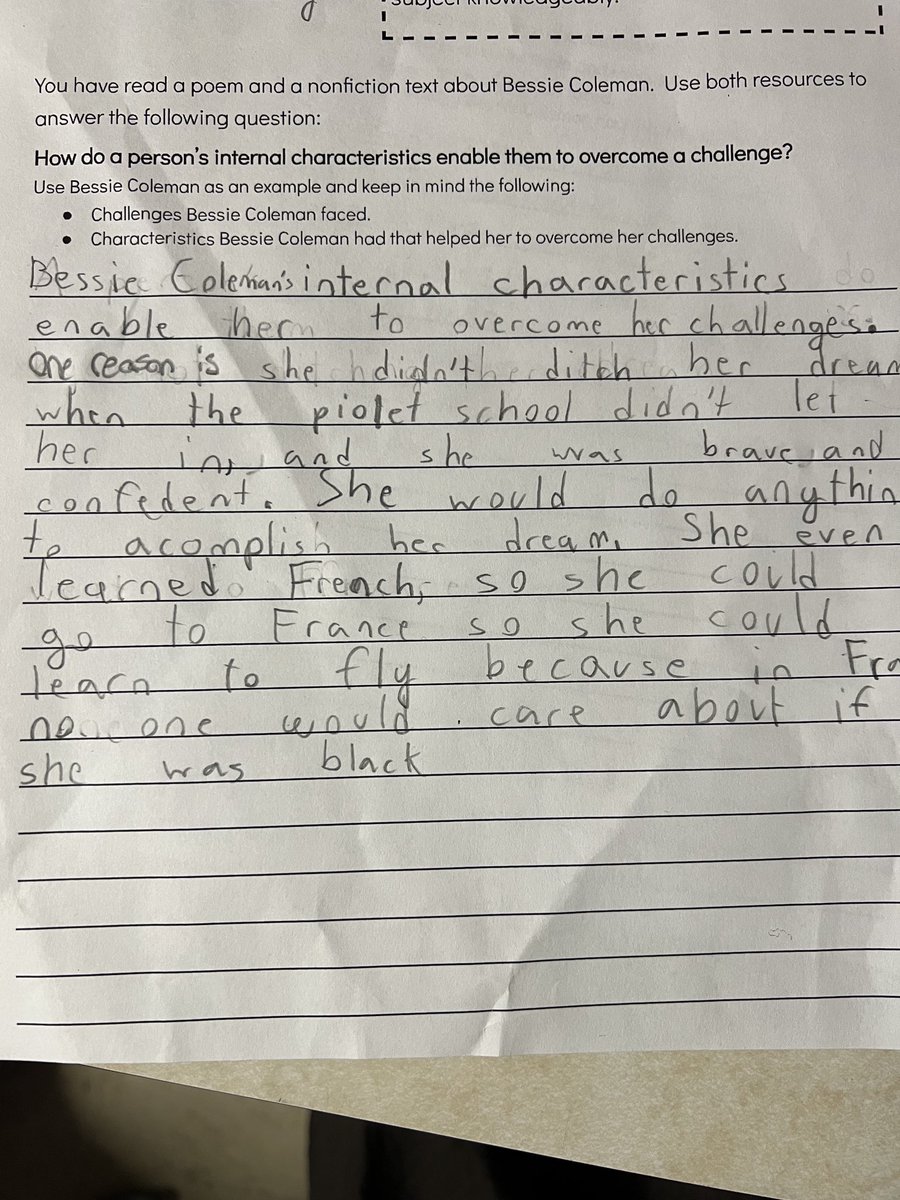 subject knowledgeably.
You have read a poem and a nonfiction text about Bessie Coleman. Use both resources to
answer the following question:
How do a person's internal characteristics enable them to overcome a challenge?
Use Bessie Coleman as an example and keep in mind the following:
• Challenges Bessie Coleman faced.
• Characteristics Bessie Coleman had that helped her to overcome her challenges.
Bessie Coleman's internal characteristics
enable her to overcome her challenges.
One reason is she didn't ditch her dream
when the piolet school didn't let
her in, and she was brave and
confedent. She would do anythin
to acomplish her dream. She even
learned French, so she could
go to France so she could
learn to fly because in Fra
no one would care about if
she was black